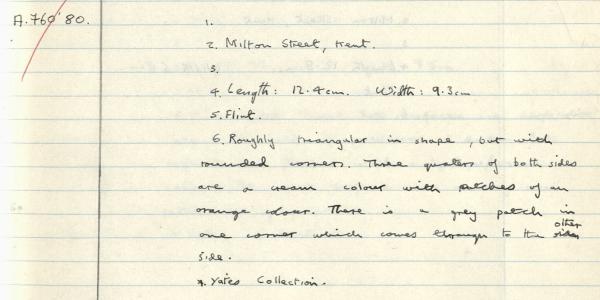 A.760'80.
1.
2. Milton Street, Kent.
3.
4. Length: 12.4cm. Width: 9.3cm
5. Flint.
6. Roughly triangular in shape, but with
rounded corners. Three quaters of both sides
are a cream colour with patches of an
orange colour. There is a grey patch in
one corner which comes through to the other
side.
7. Yates Collection.